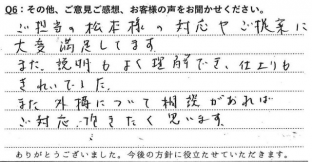 Q6：その他、ご意見ご感想、お客様の声をお聞かせください。
ご担当の松本様の対応やご提案に
大変満足してます。
また、説明もよく理解でき、仕上りも
きれいでした。
また外構について相談があれば
ご対応頂きたく思います。
ありがとうございました。今後の方針に役立たせていただきます。